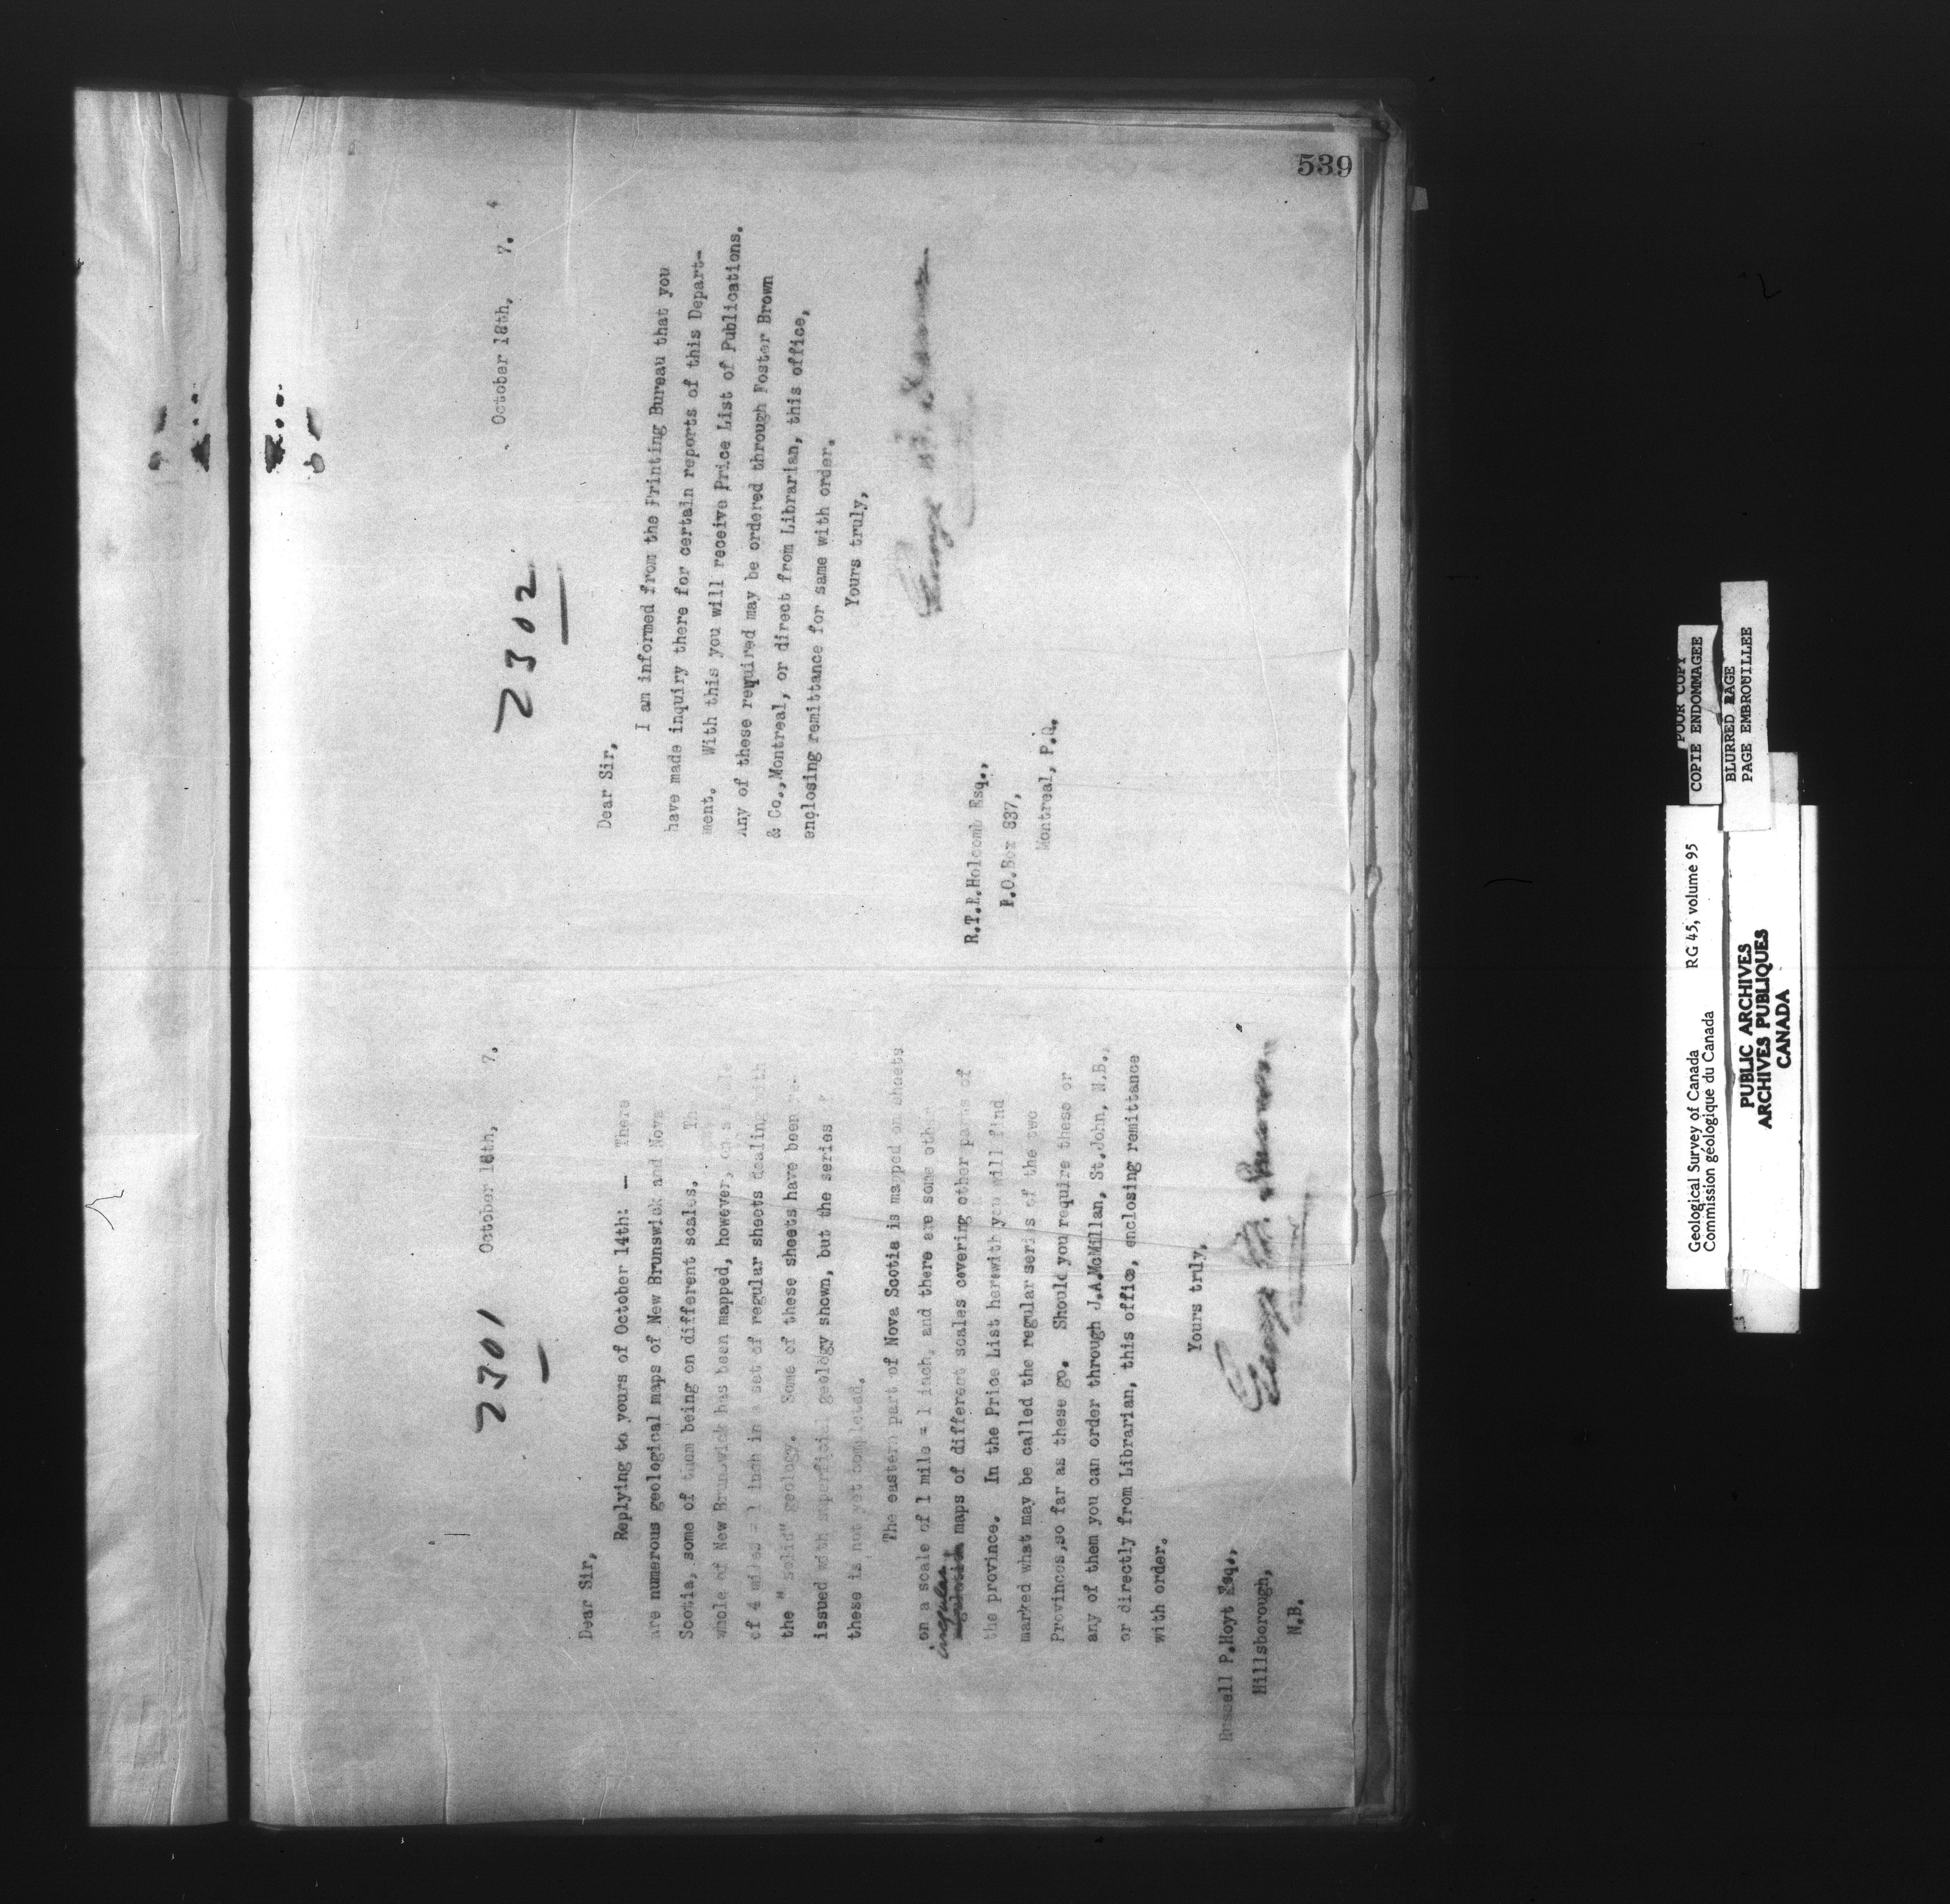 539
2301
October 18th, 7.
Dear Sir,
Replying to yours of October 14th: — There
are numerous geological maps of New Brunswick and Nova
Scotia, some of them being on different scales. The
whole of New Brunswick has been mapped, however, on a scale
of 4 miles = 1 inch in a set of regular sheets dealing with
the "solid" geology. Some of these sheets have been re-
issued with superficial geology shown, but the series of
these is not yet completed.
The eastern part of Nova Scotia is mapped on sheets
on a scale of 1 mile = 1 inch, and there are some other
irregular
maps of different scales covering other parts of
the province. In the Price List herewith you will find
marked what may be called the regular series of the two
Provinces,so far as these go. Should you require these or
any of them you can order through J.A.McMillan, St.John, N.B.,
or directly from Librarian, this office, enclosing remittance
with order.
Yours truly,
George M. Dawson
Russell P.Hoyt Esq.,
Hillsborough,
N.B.
2302
October 18th, 7.
Dear Sir,
I am informed from the Printing Bureau that you
have made inquiry there for certain reports of this Depart-
ment. With this you will receive Price List of Publications.
Any of these required may be ordered through Foster Brown
& Co.,Montreal, or direct from Librarian, this office,
enclosing remittance for same with order.
Yours truly,
George M. Dawson
R.T.R.Holcomb Esq.,
P.O.Box 837,
Montreal, P.Q.
Geological Survey of Canada RG 45, volume 95
Commission géologique du Canada
PUBLIC ARCHIVES
ARCHIVES PUBLIQUES
CANADA
POOR COPY
COPIE ENDOMMAGEE
BLURRED PAGE
PAGE EMBROUILLEE